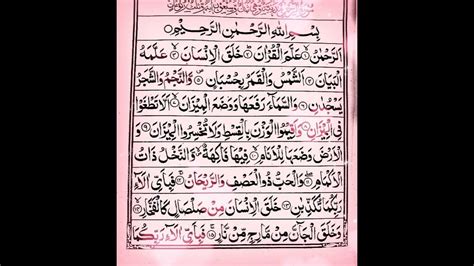 بِسْمِ اللهِ الرَّحْمٰنِ الرَّحِيْمِ
اَلرَّحْمٰنُ ۙ﴿۱﴾ عَلَّمَ الْقُرْاٰنَ ؕ﴿۲﴾ خَلَقَ الْاِنْسَانَ ۙ﴿۳﴾ عَلَّمَهُ
الْبَيَانَ ﴿۴﴾ اَلشَّمْسُ وَالْقَمَرُ بِحُسْبَانٍ ﴿۵﴾ وَّالنَّجْمُ وَالشَّجَرُ
يَسْجُدٰنِ ﴿۶﴾ وَالسَّمَآءَ رَفَعَهَا وَوَضَعَ الْمِيْزَانَ ۙ﴿۷﴾ اَلَّا تَطْغَوْا
فِي الْمِيْزَانِ ﴿۸﴾ وَاَقِيْمُوا الْوَزْنَ بِالْقِسْطِ وَلَا تُخْسِرُوا الْمِيْزَانَ ﴿۹﴾
وَالْاَرْضَ وَضَعَهَا لِلْاَنَامِ ۙ﴿۱۰﴾ فِيْهَا فَاكِهَةٌ ۙ وَّالنَّخْلُ ذَاتُ
الْاَكْمَامِ ۖ﴿۱۱﴾ وَالْحَبُّ ذُو الْعَصْفِ وَالرَّيْحَانُ ۚ﴿۱۲﴾ فَبِاَيِّ اٰلَآءِ
رَبِّكُمَا تُكَذِّبٰنِ ﴿۱۳﴾ خَلَقَ الْاِنْسَانَ مِنْ صَلْصَالٍ كَالْفَخَّارِ ۙ﴿۱۴﴾
وَخَلَقَ الْجَآنَّ مِنْ مَّارِجٍ مِّنْ نَّارٍ ۚ﴿۱۵﴾ فَبِاَيِّ اٰلَآءِ رَبِّكُمَا